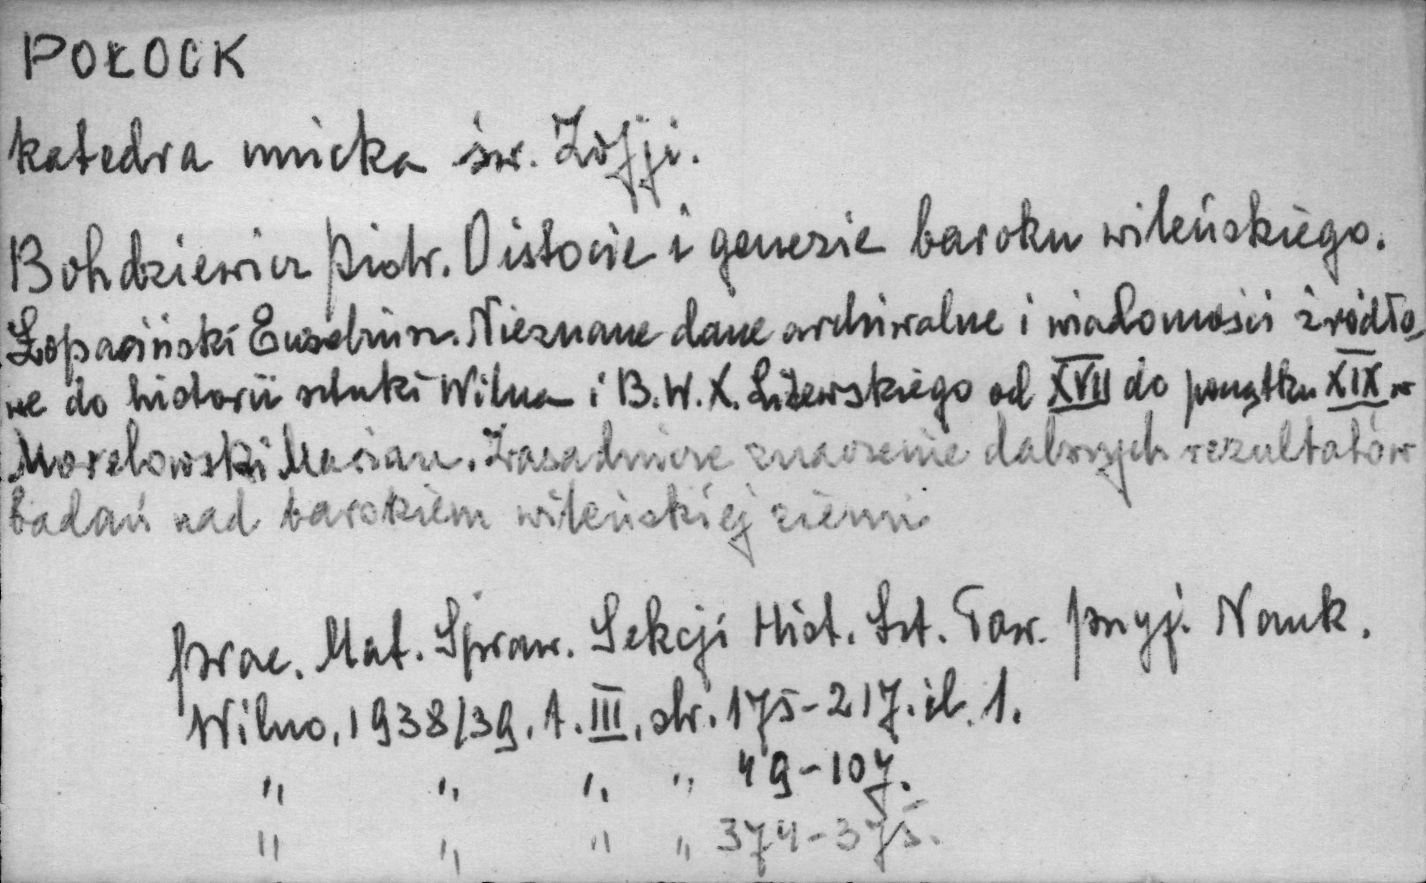 POŁOCK
katedra unicka św. Zofji.
Bohdziewicz Piotr. O istocie i genezie baroku wileńskiego.
Łopaciński Euzebiusz. Nieznane dane archiwalne i wiadomości źródło-
we do historii sztuki Wilna i B.W.X. Litewskiego od XVII do początku XIX w
Morelowski Marian. Zasadnicze znaczenie dalszych rezultatów
badań nad barokiem wileńskiej ziemi
Prac. Mat. Spraw. Sekcji Hist. Szt. Tow. Przyj. Nauk.
Wilno, 1938/39, t. III, str. 175-217. il. 1.
" " " " 49-107.
" " " " 374-375.